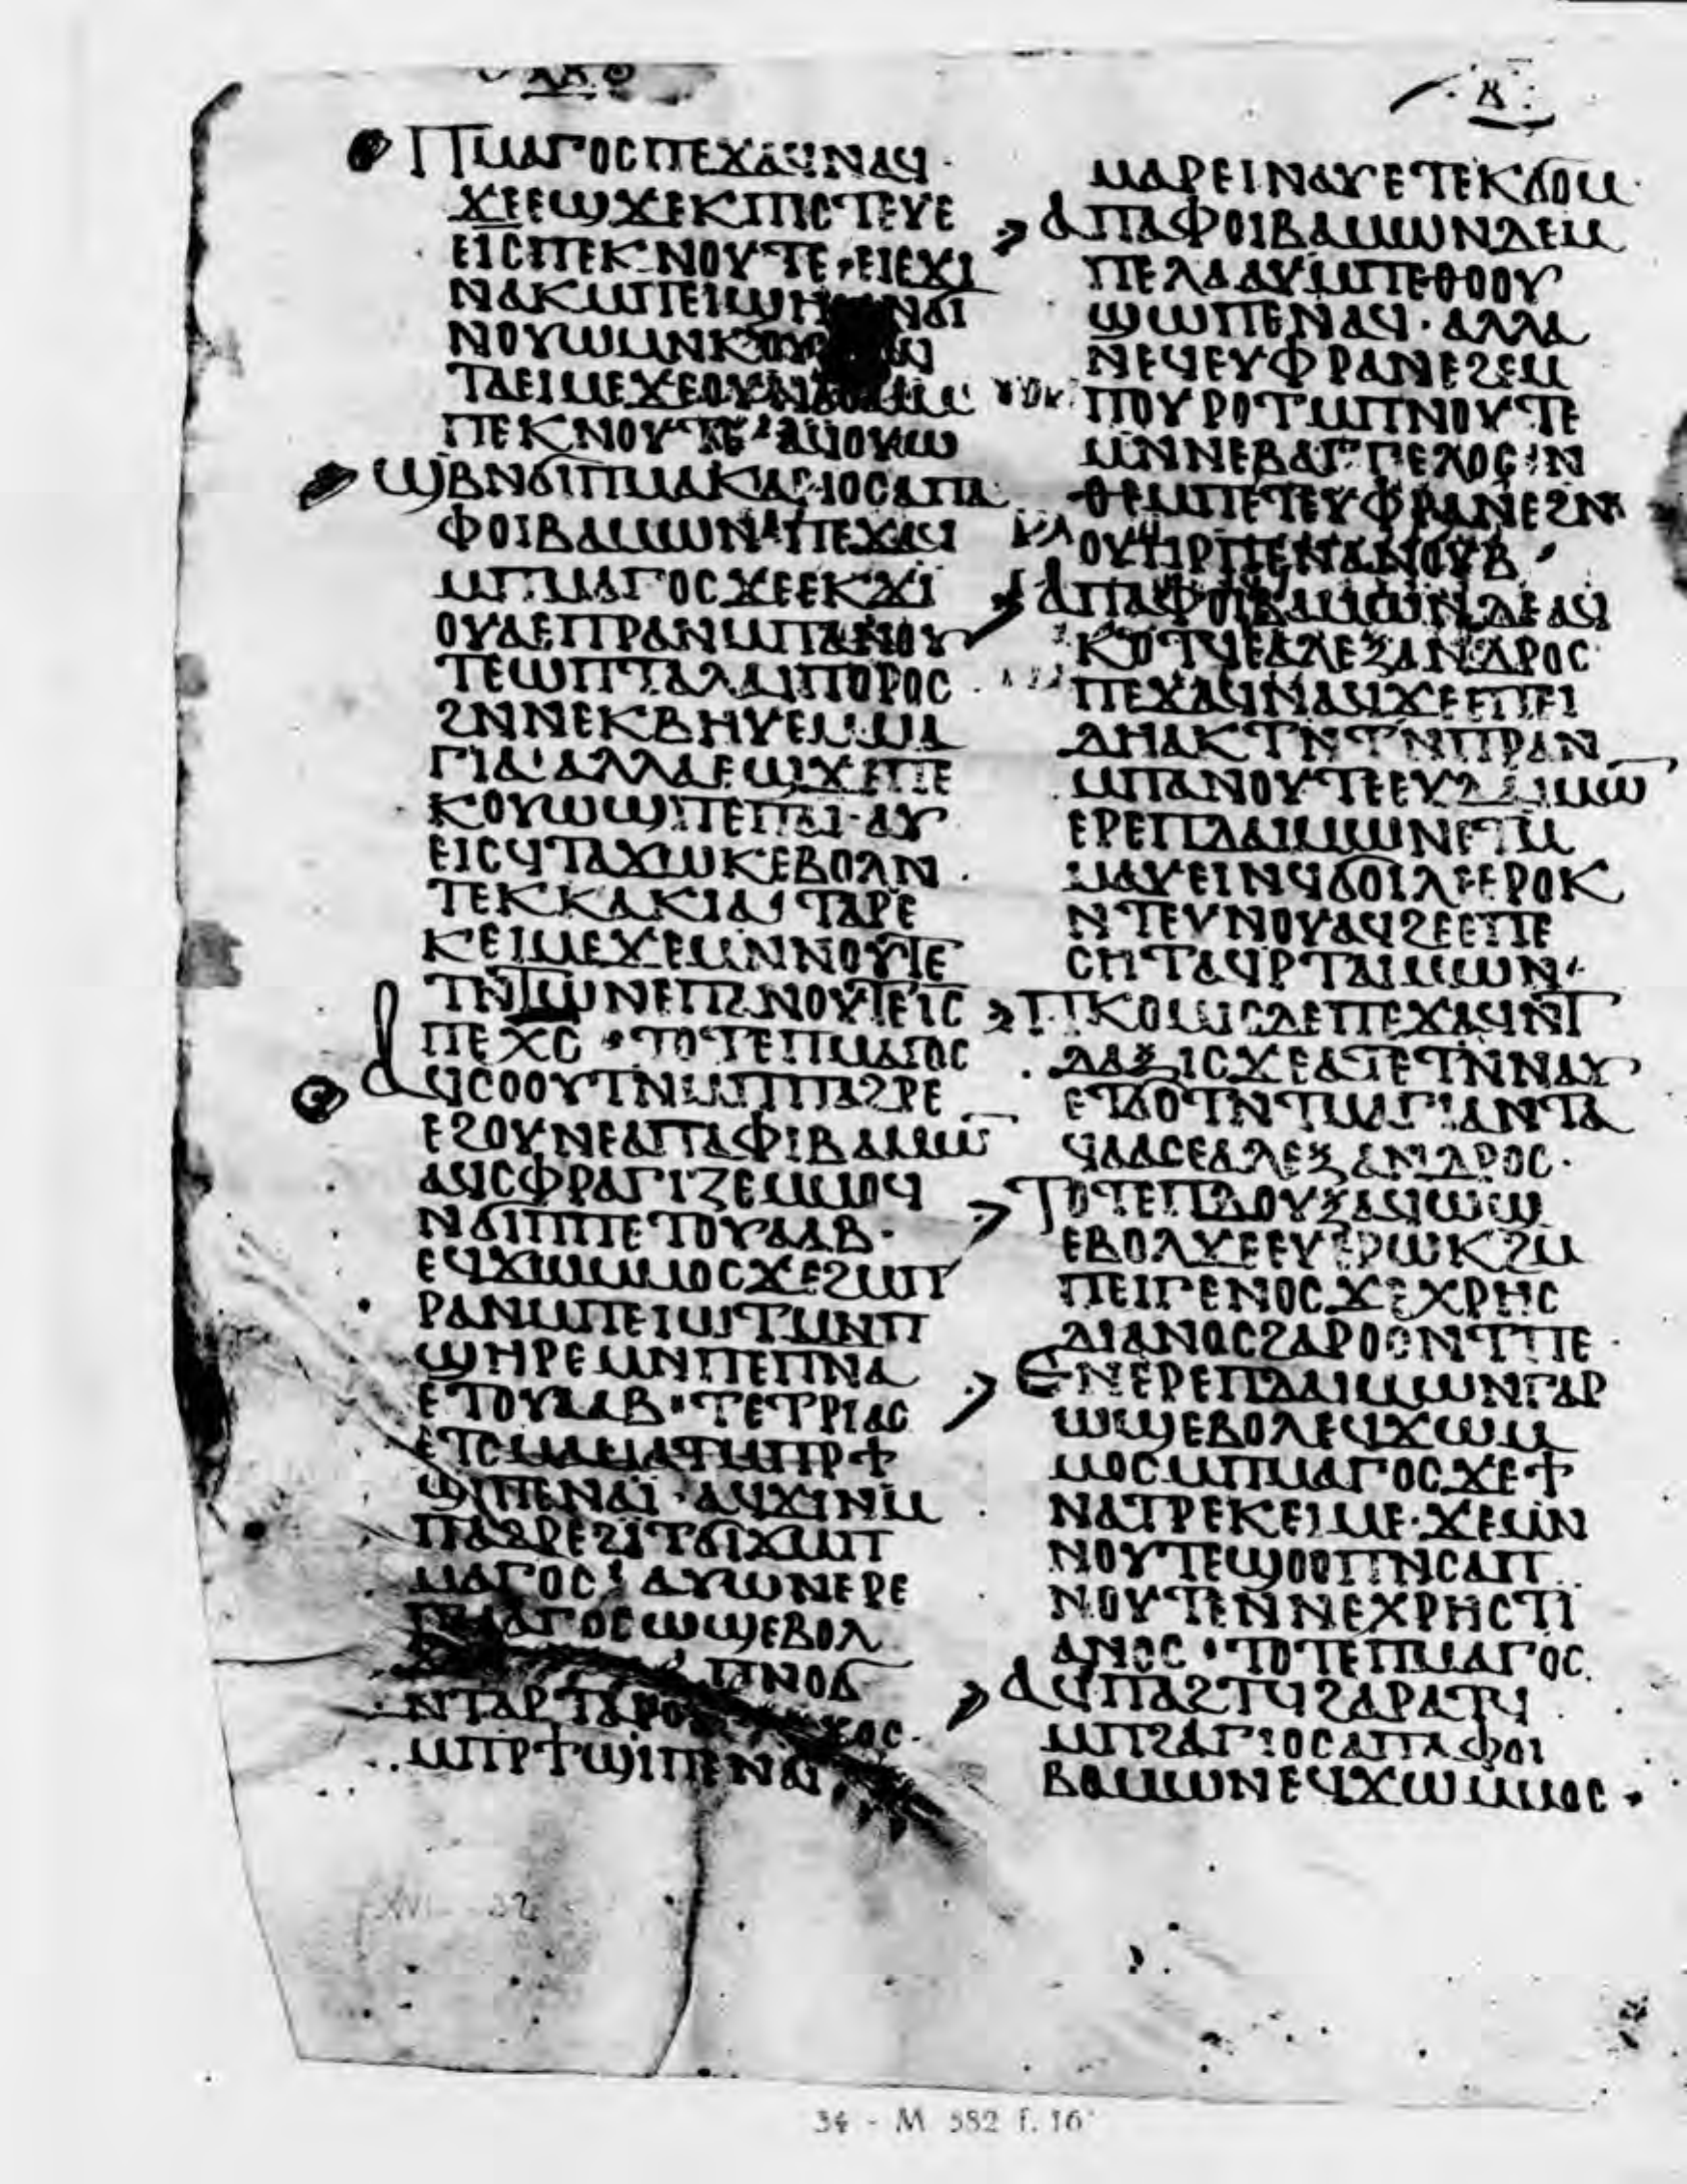 ⲗ
ⲡⲙⲁⲅⲟⲥⲡⲉϫⲁϥⲛⲁϥ·
ϫⲉⲉϣϫⲉⲕⲡⲓⲥⲧⲉⲩⲉ
ⲉⲓⲥⲡⲉⲕⲛⲟⲩⲧⲉ·ⲉⲓⲉϫⲓ
ⲛⲁⲕⲙⲡⲉⲓϣⲏ ⲛϭⲓ
ⲛⲟⲩⲱⲙⲛⲕ
ⲧⲁⲉⲓⲙⲉϫⲉⲟⲩⲛ
ⲡⲉⲕⲛⲟⲩⲧⲉ·ⲁϥⲟⲩⲱ
ϣⲃⲛϭⲓⲡⲙⲁⲕⲁⲣⲓⲟⲥⲁⲡⲁ
ⲫⲟⲓⲃⲁⲙⲱⲛ·ⲡⲉϫⲁϥ
ⲙⲡⲙⲁⲅⲟⲥϫⲉⲉⲕϫⲓ
ⲟⲩⲁⲉⲡⲣⲁⲛⲙⲡⲁⲛⲟⲩ
ⲧⲉⲱⲡⲧⲁⲗⲁⲓⲡⲟⲣⲟⲥ·
ϩⲛⲛⲉⲕⲃⲏⲩⲉⲙⲙⲁ
ⲅⲓⲁ·ⲁⲗⲗⲁⲉϣϫⲉⲡⲉ
ⲕⲟⲩⲱϣⲡⲉⲡⲁⲓ·ⲁⲩ
ⲉⲓⲥϥⲧⲁϫⲱⲕⲉⲃⲟⲗⲛ
ⲧⲉⲕⲕⲁⲕⲓⲁ·ⲧⲁⲣⲉ
ⲕⲉⲓⲙⲉϫⲉⲙⲛⲛⲟⲩⲧⲉ
ⲧⲛⲧⲱⲛⲉⲡⲁⲛⲟⲩⲧⲉⲓⲥ
ⲡⲉⲭⲥ·ⲧⲟⲧⲉⲡⲙⲁⲅⲟⲥ
ⲁϥⲥⲟⲟⲩⲧⲛⲙⲡⲡⲁϩⲣⲉ
ⲉϩⲟⲩⲛⲉⲁⲡⲁⲫⲓⲃⲁⲙⲱ̅
ⲁϥⲥⲫⲣⲁⲅⲓⲍⲉⲙⲙⲟϥ
ⲛϭⲓⲡⲡⲉⲧⲟⲩⲁⲁⲃ·
ⲉϥϫⲱⲙⲙⲟⲥϫⲉϩⲙⲡ
ⲣⲁⲛⲙⲡⲉⲓⲱⲧⲙⲛⲡ
ϣⲏⲣⲉⲙⲛⲡⲉⲡⲛⲁ
ⲉⲧⲟⲩⲁⲁⲃ·ⲧⲉⲧⲣⲓⲁⲥ
ⲉⲧⲥⲙⲁⲙⲁⲁⲧⲙⲡⲣϯ
ϣⲓⲡⲉⲛⲁⲓ·ⲁϥϫⲓⲛⲙ
ⲡⲁϩⲣⲉϩⲓⲧϭⲓϫⲙⲡ
ⲙⲁⲅⲟⲥ·ⲁⲩⲱⲛⲉⲣⲉ
ⲡⲙⲁⲅⲟⲥⲱϣⲉⲃⲟⲗ
ⲡⲛⲟϭ
ⲛⲧⲁⲣⲧⲁⲣⲟⲥ
ⲙⲡⲣϯϣⲓⲡⲉⲛⲁⲓ
ⲙⲁⲣⲉⲓⲛⲁⲩⲉⲧⲉⲕϭⲟⲙ·
ⲁⲡⲁⲫⲟⲓⲃⲁⲙⲱⲛⲇⲉⲙ
ⲡⲉⲗⲁⲁⲩⲙⲡⲉⲑⲟⲟⲩ
ϣⲱⲡⲉⲛⲁϥ·ⲁⲗⲗⲁ
ⲛⲉϥⲉⲩⲫⲣⲁⲛⲉϩⲉⲙ
ⲡⲟⲩⲣⲟⲧⲙⲡⲛⲟⲩⲧⲉ
ⲙⲛⲛⲉⲃⲁⲅⲅⲉⲗⲟⲥ·ⲛ
ⲑⲉⲙⲡⲉⲧⲉⲩⲫⲣⲁⲛⲉϩⲛ
ⲟⲩⲏⲣⲡⲉⲛⲁⲛⲟⲩⲃ·
ⲁⲡⲁⲫⲟⲓⲃⲁⲙⲱⲛⲇⲉⲁϥ
ⲕⲟⲧϥⲉⲁⲗⲉⲝⲁⲛⲇⲣⲟⲥ·
ⲡⲉϫⲁϥⲛⲁϥϫⲉⲉⲡⲉⲓ
ⲇⲏⲁⲕⲧⲛⲧⲛⲡⲣⲁⲛ
ⲙⲡⲁⲛⲟⲩⲧⲉⲉⲩⲇⲁⲓⲙⲱ̅
ⲉⲣⲉⲡⲇⲁⲓⲙⲱⲛⲉⲧⲙ
ⲙⲁⲩⲉⲓⲛϥϭⲟⲓⲗⲉⲉⲣⲟⲕ
ⲛⲧⲉⲩⲛⲟⲩⲁϥϩⲉⲉⲡⲉ
ⲥⲏⲧⲁϥⲣⲧⲁⲓⲙⲱⲛ·
ⲡⲕⲟⲙⲓⲥⲇⲉⲡⲉϫⲁϥⲛⲧ
ⲇⲁⲝⲓⲥϫⲉⲁⲧⲉⲧⲛⲛⲁⲩ
ⲉⲧϭⲟⲧⲛⲧⲙⲁⲅⲓⲁⲛⲧⲁ
ϥⲁⲁⲥⲉⲁⲗⲉⲝⲁⲛⲇⲣⲟⲥ·
ⲧⲟⲧⲉⲡⲇⲟⲩⲝⲁϥⲱϣ
ⲉⲃⲟⲗϫⲉⲉⲩⲉⲣⲱⲕϩⲙ
ⲡⲉⲓⲅⲉⲛⲟⲥϫⲉⲭⲣⲏⲥ
ⲇⲓⲁⲛⲟⲥϩⲁⲣⲟⲟⲛⲧⲡⲉ·
ⲉⲛⲉⲣⲉⲡⲇⲁⲓⲙⲱⲛⲅⲁⲣ
ⲱϣⲉⲃⲟⲗⲉϥϫⲱⲙ
ⲙⲟⲥⲙⲡⲙⲁⲅⲟⲥϫⲉϯ
ⲛⲁⲧⲣⲉⲕⲉⲓⲙⲉ·ϫⲉⲙⲛ
ⲛⲟⲩⲧⲉϣⲟⲟⲡⲛⲥⲁⲡ
ⲛⲟⲩⲧⲉⲛⲛⲉⲭⲣⲏⲥⲧⲓ
ⲁⲛⲟⲥ·ⲧⲟⲧⲉⲡⲙⲁⲅⲟⲥ
ⲁϥⲡⲁϩⲧϥϩⲁⲣⲁⲧϥ
ⲙⲡϩⲁⲅⲓⲟⲥⲁⲡⲁⲫⲟⲓ
ⲃⲁⲙⲱⲛⲉϥϫⲱⲙⲙⲟⲥ·
34 - M 582 f. 16